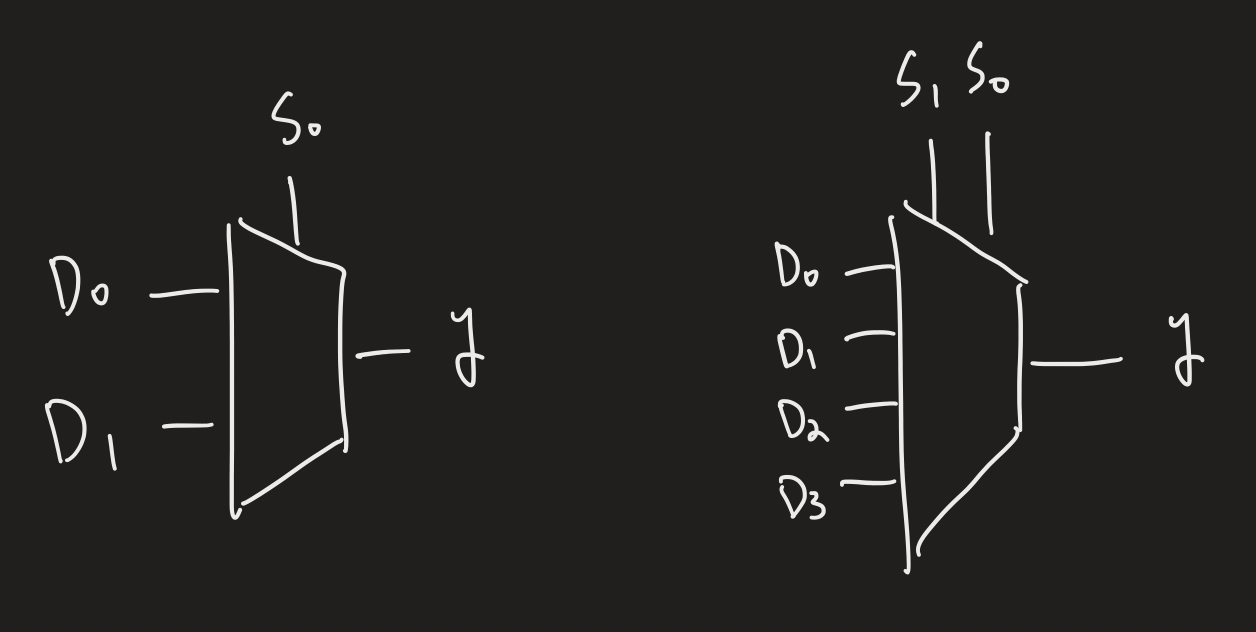 S₀
D₀
D₁
y
S₁ S₀
D₀
D₁
D₂
D₃
y